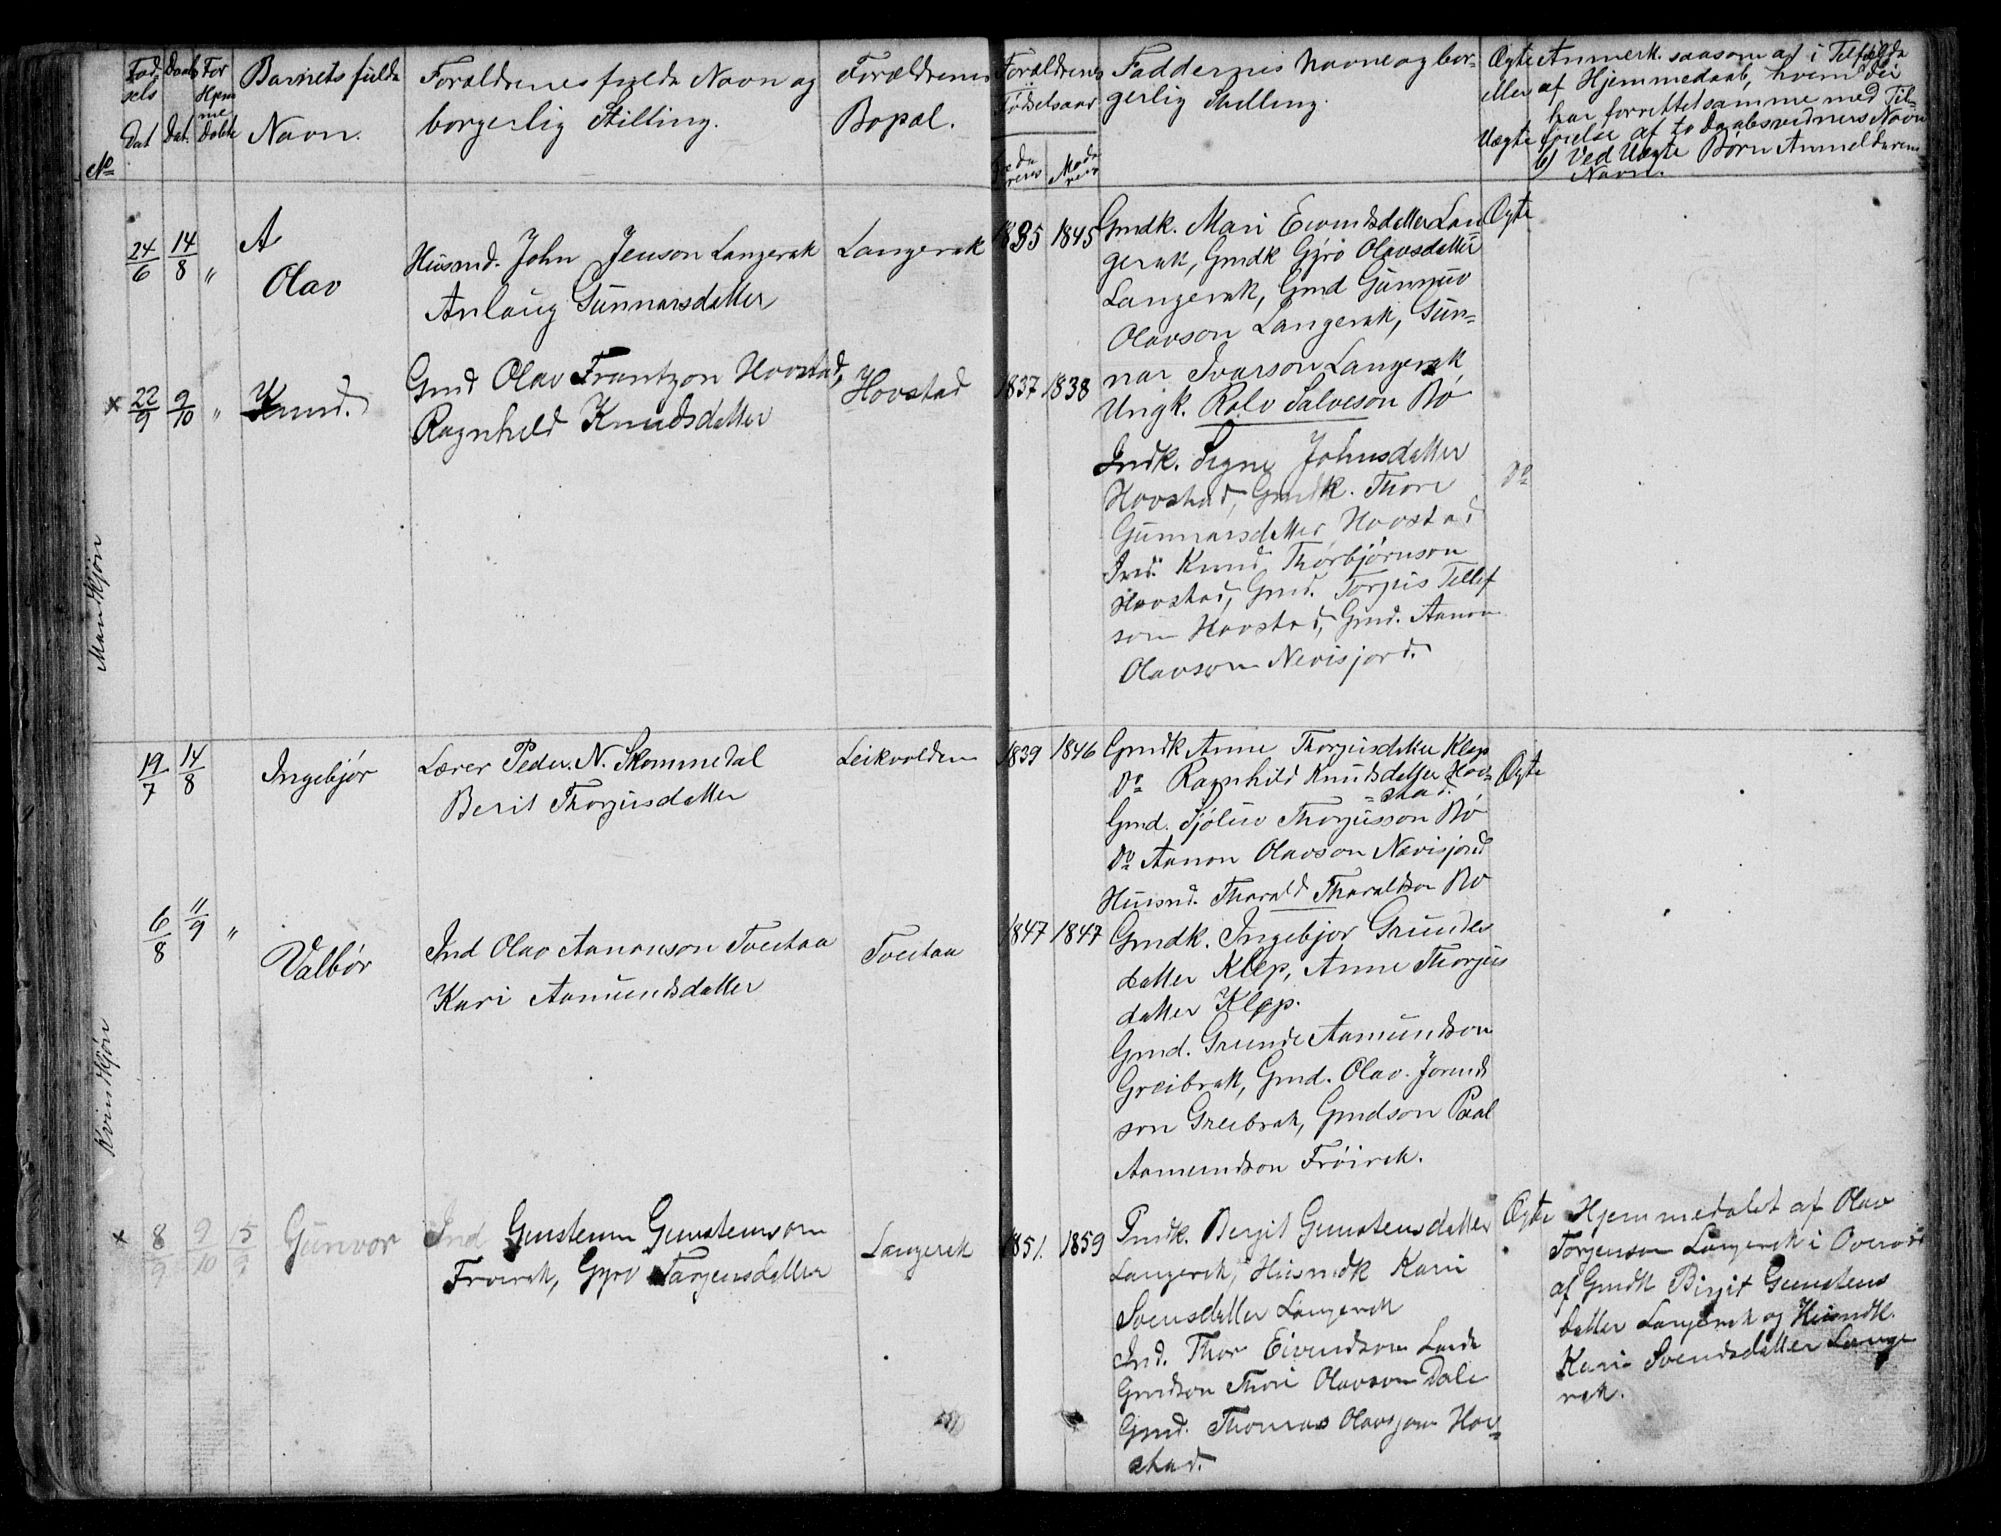 No
Fød
sels
Dat
Daabs
Dat.
For
Hjem
me
Døbte
Barnets fulde
Navn.
Forældrenes fulde Navn og
borgerlig Stilling.
Forældrenes
Bopæl.
Forældrenes
Fødselsaar
Fade
rens
Mode
rens
Faddernes Navne og bor-
gerlig Stilling.
Ægte
eller
Uægte
Anmerk. saasom a) i Tilfælde
af Hjemmedaab, hvem der
har forrettet samme med Til-
føielse af to Daabsvidners Navn
b) Ved Uægte Børn Anmelderens
Navn.
Mandkjøn
24/6 14/8 "
A
Olav
Husmd. John Jenson Langerak
Anlaug Gunnarsdatter
Langerak
1835 1845
Gmdk. Mari Eivindsdatter Lan
gerak, Gmdk Gjro Olavsdatter
Langerak, Gmd Gunnuv
Olavson Langerak, Gun=
nar Ivarson Langerak,
Ungk. Rolv Salveson Bø
Ægte
x 22/9 9/10 "
Knud.
Gmd Olav Frantzon Hovstad,
Ragnhild Knudsdatter
Hovstad
1837 1838
Indk. Signe Johnsdatter
Hovstad, Gmdk. Thore
Gunnarsdatter Hovstad
Ind. Knud Thorbjørnson
Hovstad, Gmd. Torjus Tellef
son Hovstad, Gmd. Aanon
Olavson Nevisjord.
Do
Kvindkjøn
19/7 14/8
Ingebjør
Lærer Peder. N. Skommedal
Berit Thorjusdatter
Leikvolden
1839 1846
Gmdk Anne Thorjusdatter Klep
Do Ragnhild Knudsdatter Hov=
=stad.
Gmd. Sjøluv Thorjusson Bø
Do Aanon Olavson Nævisjord
Husmd. Tharald Tharaldson Bø
Ægte
6/8 11/9 "
Valbør
Ind Olav Aanonson Tveitaa
Kari Aamundsdatter
Tveitaa
1847 1847
Gmdk. Ingebjor Grundes
datter Klep, Anne Thorjus
datter Klep.
Gmd. Grunde Aamundson
Greibrok, Gmd. Olav. Jorund
son Greibrok, Gmdson Paal
Aamundson Frøirak.
x 8/9 9/10 15/9
Gunvor
Ind Gunstein Gunsteinson
Frøirak, Gyro Targeusdatter
Langerak
1851. 1859
Gmdk. Bergit Gunstensdatter
Langerak, Husmdk Kari
Svensdatter Langerak
Ind. Thor Eivindson Lande
Gmdson Thore Olavson Dale
Gmd. Thomas Olavson Hov=
stad.
Ægte
Hjemmedøbt af Olav
Torjeuson Langerak i Overvær
af Gmdk Birgit Gunstens
datter Langerak og Husmdk.
Kari Svendsdatter Lange
rak.